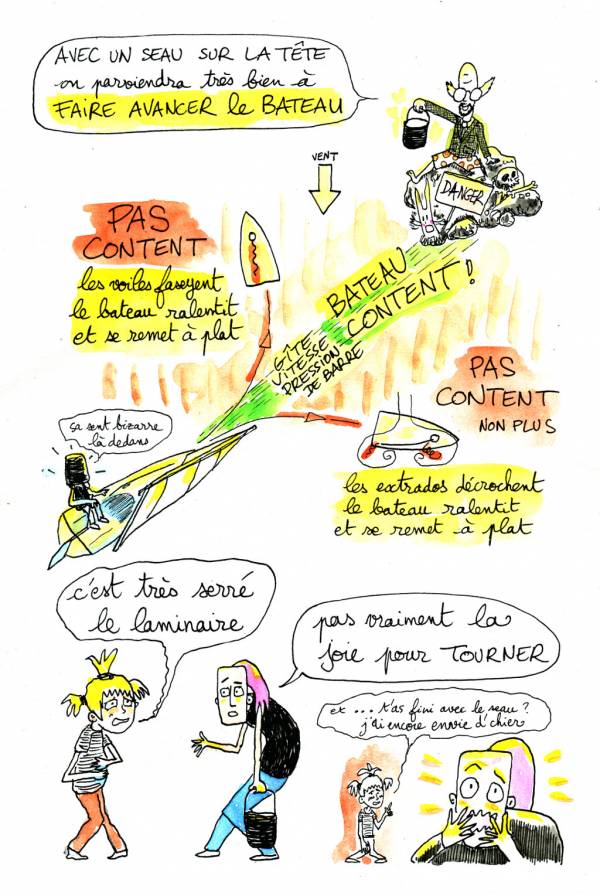 AVEC UN SEAU SUR LA TÊTE
on parviendra très bien à
FAIRE AVANCER le BATEAU
VENT
DANGER
PAS
CONTENT
les voiles faseyent
le bateau ralentit
et se remet à plat
BATEAU
CONTENT !
GÎTE
VITESSE
PRESSION
DE BARRE
PAS
CONTENT
NON PLUS
ça sent bizarre
là dedans
les extrados décrochent
le bateau ralentit
et se remet à plat
c'est très serré
le laminaire
pas vraiment la
joie pour TOURNER
et ... t'as fini avec le seau ?
j'ai encore envie d'chier